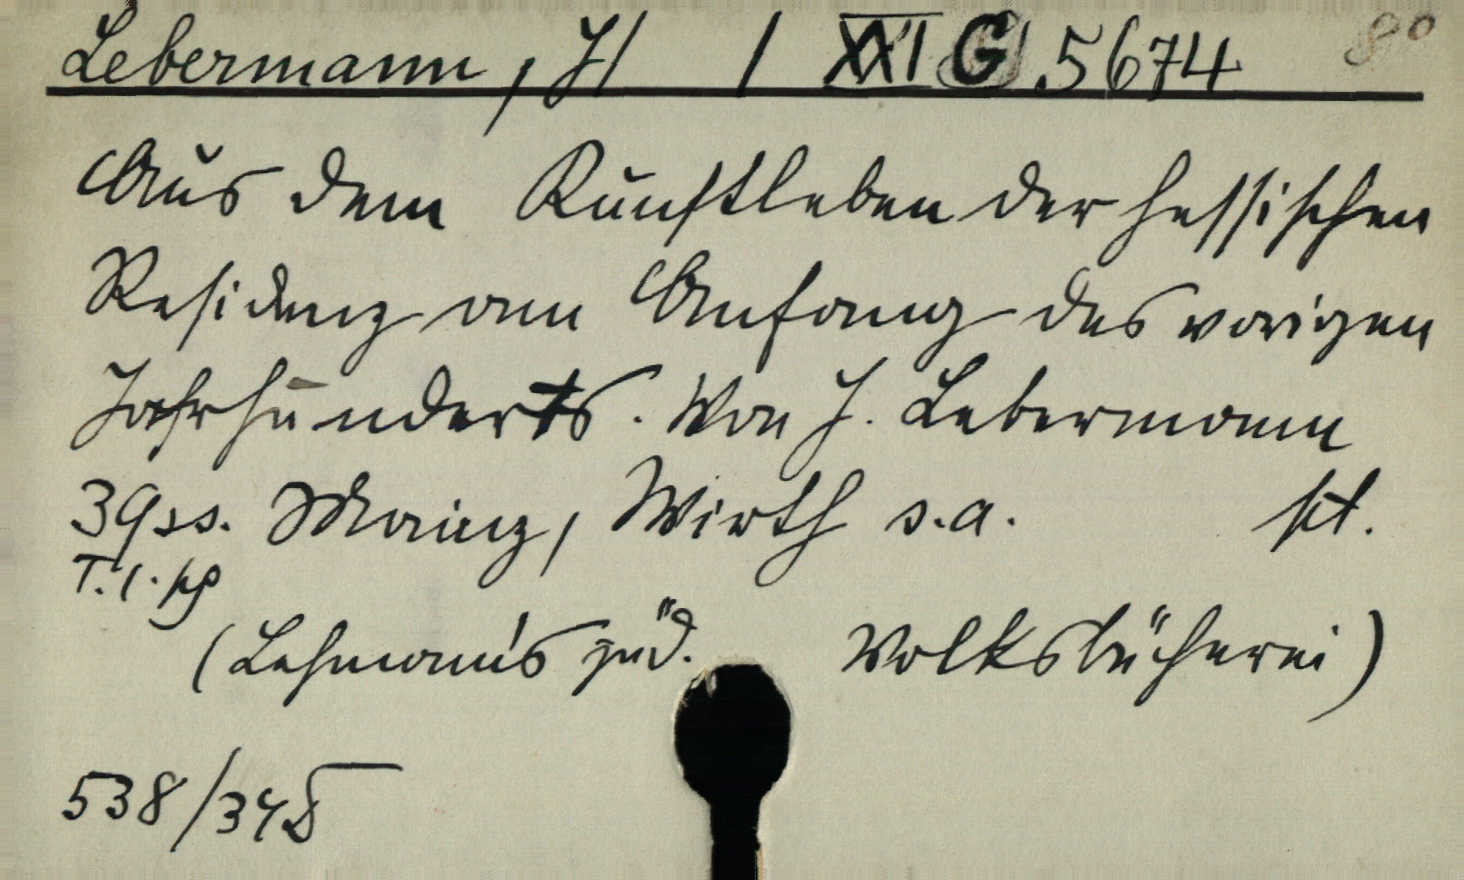 Lebermann, J/ / XXI G 5674 8°
Aus dem Kunstleben der hessischen
Residenz am Anfang des vorigen
Jahrhunderts. Von J. Lebermann
39 ss. Mainz, Wirth s.a.
T. I.
(Lehmann's jüd. Volksbücherei)
538/34